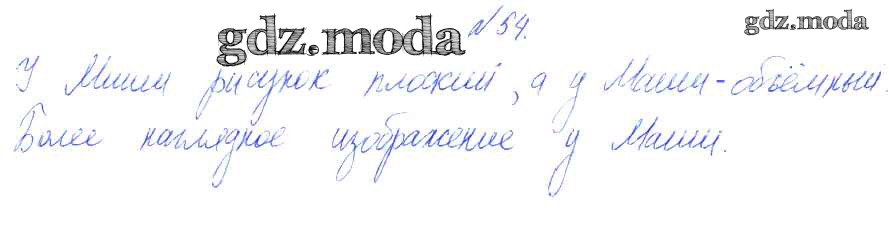 № 54.
gdz.moda
gdz.moda
У Миши рисунок плоский, а у Маши - объёмный.
Более наглядное изображение у Маши.